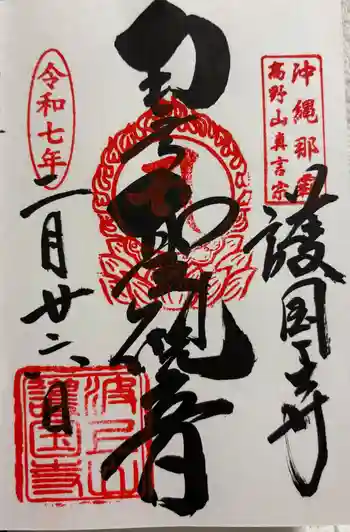 沖縄那覇
高野山真言宗
護国寺
聖観音
令和七年
二月廿二日
波上山
護国寺